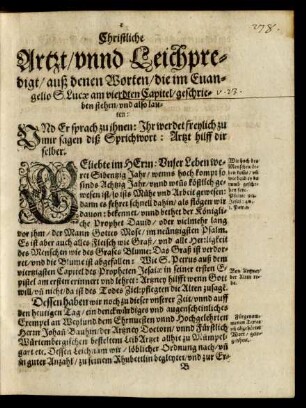 278.
Christliche
Artzt/vnnd Leichpre-
digt/auß denen Worten/die im Euan-
gelio S. Lucæ am vierdten Capitel/geschrie- v. 23.
ben stehen/vnd also lau-
ten:
VNd Er sprach zu ihnen: Ihr werdet freylich zu
mir sagen diß Sprichwort: Artzt hilff dir
selber.
GEliebte im HErrn: Vnser Leben we-
ret Sibenzig Jahr/wenns hoch kompt so
sinds Achzig Jahr/vnnd wens köstlich ge-
wesen ist/so ists Mühe vnd Arbeit gewesen:
dann es fehret schnell dahin/als flögen wir
dauon: bekennet/vnnd bethet der Königli-
che Prophet Dauid/oder vielmehr lang
vor ihm/der Mann Gottes Mose/im neünzigsten Psalm.
Es ist aber auch alles Fleisch wie Graß/vnd alle Herrligkeit
des Menschen wie des Grases Blume: Das Graß ist verdor-
ret/vnd die Blume ist abgefallen: Wie S. Petrus auß dem
viertzigsten Capitel des Propheten Jesaiæ in seiner ersten E-
pistel am ersten erinnert vnd lehret: Artzney hilfft wenn Gott
will/vnd nicht/da es ist des Todes Zeit: pflegten die Alten zusagen.
Dessen haben wir noch zu dieser vnserer Zeit/vnnd auff
den heutigen Tag/ein denckwürdiges vnd augenscheinliches
Exempel an Weylund dem Ehrnuesten vnnd Hochgelehrten
Herrn Johañ Bauhin/der Artzney Doctorn/vnnd Fürstlich
Würtembergischen bestelten Leib Artzet allhie zu Mümpel-
gart etc. Dessen Leichnam wir/löblicher Ordnung nach/vñ
in guter Anzahl/zu seinem Rhubettlin begleytet/vnd zur Er-
B